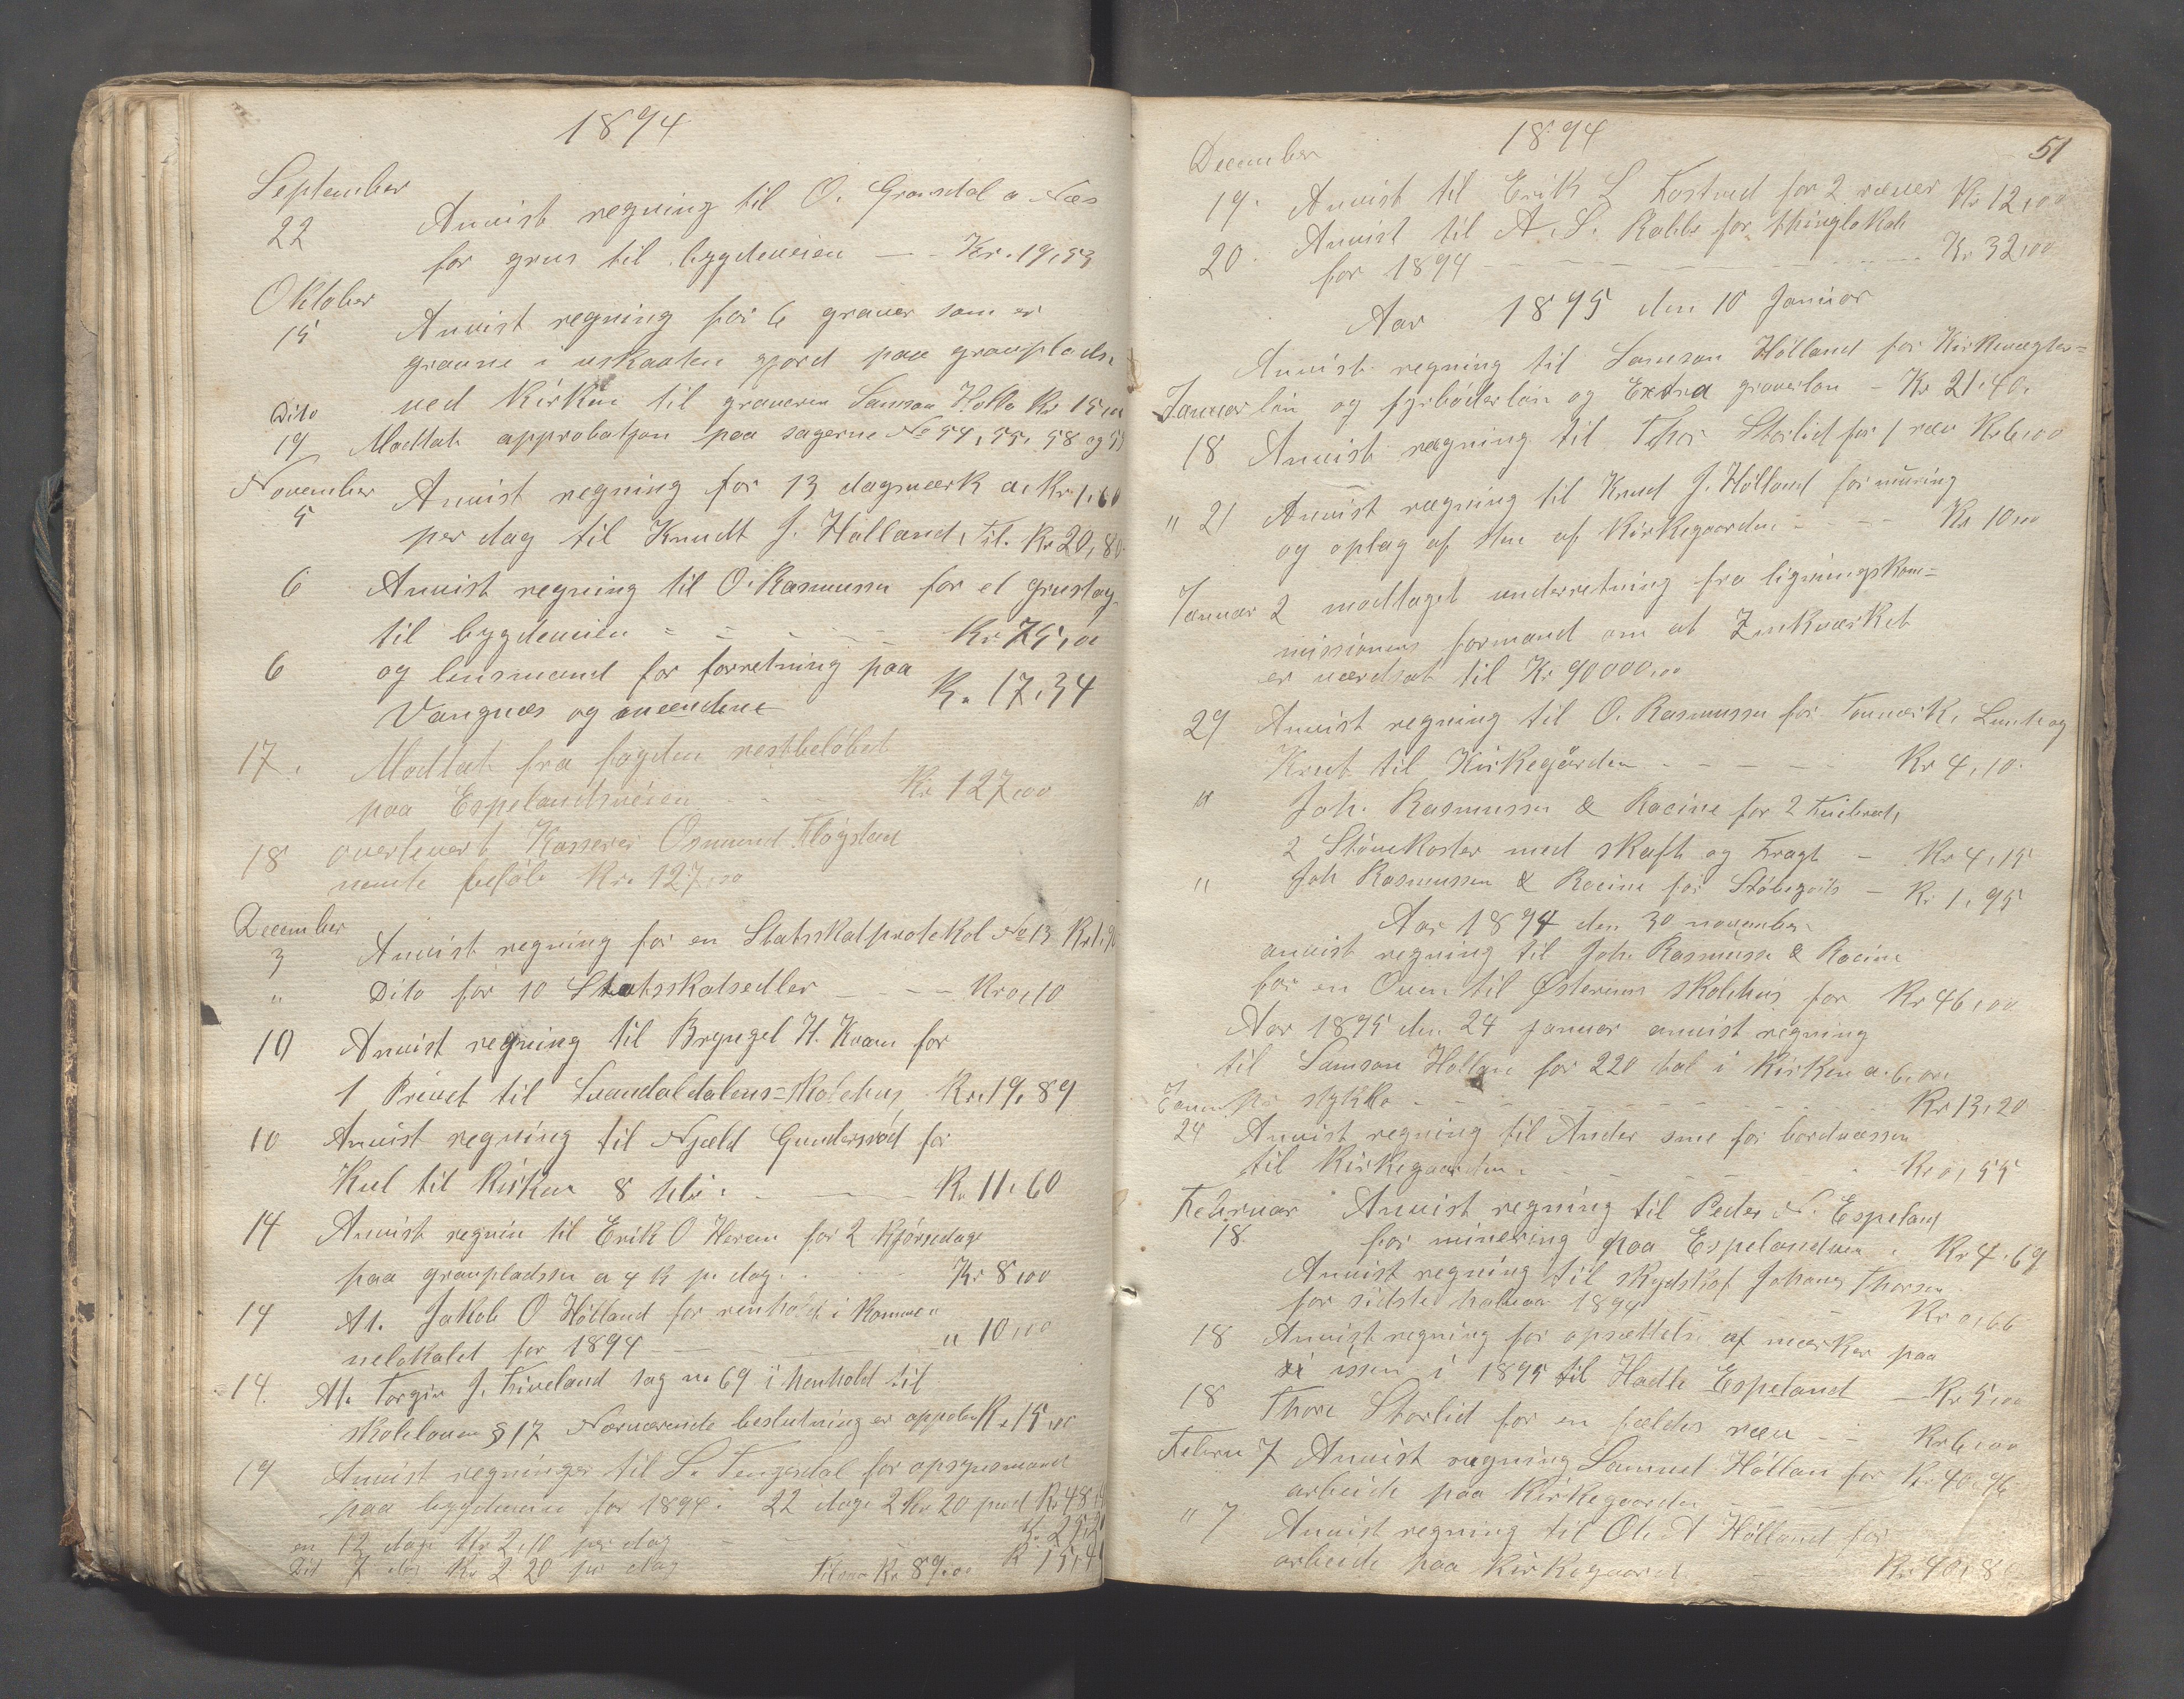 1894
September
22 Anvist regning til O. Gransdal a Næs
for grus til bygdeveien — - Kr. 19,53
Oktober
15 Anvist regning for 6 graver som er
gravne i uskaaten gjord paa gravplads
ved Kirken til graveren Samson Holla Kr 15,00
Dito
19 Modtat approbatjon paa sagerne No 54, 55, 58 og 59
November
5 Anvist regning for 13 dagsværk a, Kr. 1,60
per dag til Knudt J. Hølland, Til. Kr 20,80
6 Anvist regning til O. Rasmussen for et grustag
til bygdeveien - - - - - Kr. 75,00
6 og lensmand for forretning paa
Vangnæs og Kr. 17,34
17. Modtat fra fogden restbeløbet
paa Espelandsveien - - Kr 127,00
18 overlevert Kasserer Osmund Fløgstad
nemte beløb Kr. 127,00
December
3 Anvist regning for en Statsskatprotokol No 13 Kr 1,90
" Dito for 10 Statsskatsedler — - - - Kr 0,10
10 Anvist regning til Bryngel H. Kvam for
1 Privet til Svandaldalens=skolehus, Kr. 19,89
10 Anvist regning til Njæld Gundersød for
Kul til Kirken 8 hl - — Kr. 11,60
14 Anvist regnin til Erik O Heram for 2 kjørsedage
paa gravpladsen a 4 K pr dag. - - Kr 8,00
14 At. Jakob O Hølland for renhold i Kommu
nelokalet for 1894 — " 10,00
14. At. Torgier J. Tiveland sag no 69 i henhold til
skoleloven § 17 Nærværende beslutning er Kr. 15,00
19 Anvist regninger til S. Tengesdal for opsynsmand
paa bygdeveie for 1894. 22 dage 2 Kr 20 Kr 48,40
en 12 dage Kr 2,10 per dag K. 25,20
Dit 7 dag Kr 2 20 pr dag Tilsam Kr 89,00 K 15,40
1894
51
December
19. Anvist til Erik L Tostved for 2 ræver Kr 12,00
20. Anvist til A. S. Rabbe for thinglokale
for 1894 — — — — Kr 32,00
Aar 1895 den 10 Januar
Anvist regning til Samson Hølland for Kirkevægter=
Januar løn og fyrbøderløn og Extra graverløn - Kr 21,40.
18 Anvist regning til Thor Storlid for 1 ræv Kr 6,00
" 21 Anvist regning til Knud J. Hølland for muring
og oplag af af Kirkegaarden - - - Kr 10,00
Januar 2 modtaget underretning fra ligningskom=
missionens formand om at Zinkværket
er værdsat til Kr 90000,00
29 Anvist regning til O. Rasmussen for Tougværk, Lunte og
Krut til Kirkegården - - - - - Kr 4,10.
" Joh. Rasmussen & Racine for 2
2 Støvekoster med skaft og Fragt - Kr 4,15
" Joh Rasmussen & Racine for Støbegods - Kr. 1,95
Aar 1894 den 30 november
anvist regning til Joh. Rasmussen & Racine
for en Ovn til skolehus for Kr 46,00
Aar 1895 den 24 januar anvist regning
til Samson Hollan for 220 hol i Kirken a 6 øre
Januar pr stykke - - - - - - Kr 13,20
24 Anvist regning til Ander sme for
til Kirkegaarden. - - - - - Kr 0,55
Februar Anvist regning til Peder N. Espeland
18. for minering paa Espelandveien. Kr 4,69
Anvist regning til skydsskaf Johanes Thorsen
for sidste halvaar 1894 - Kr 0,66
18 Anvist regning for opsættelse af mærker paa
issen i 1895 til Hadle Espeland - Kr 5,00
18 Thore Storlid for en fældet ræv - - Kr 6,00
Febru 7 Anvist regning Samuel Høllan for Kr 40,96
arbeide paa Kirkegaarden - - -
" 7 Anvist regning til Ole A Hølland for
arbeide paa Kirkegaard. - Kr 40,8